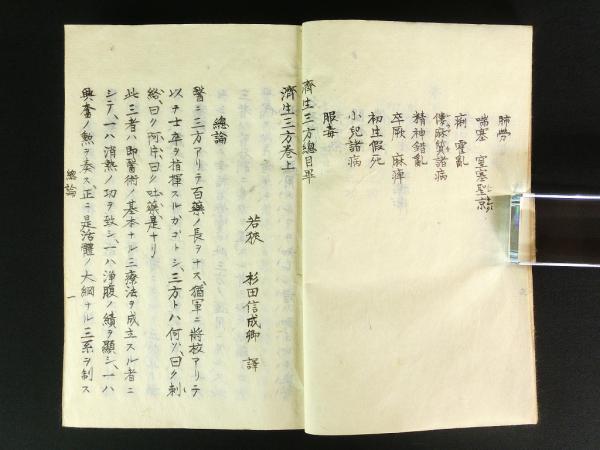 肺勞
喘塞 窒塞聖京
痢 霍亂
僂麻質諸病
精神錯亂
卒厥 麻痺
初生假死
小兒諸病
服毒
濟生三方總目畢
濟生三方卷上
若狹 杉田信成卿 譯
總論
醫ニ三方アリテ百藥ノ長ヲナス、猶軍ニ將校アリテ
以テ士卒ヲ指揮スルガゴトシ、三方トハ何ソ、曰ク刺
絡、曰ク阿片、曰ク吐藥、是ナリ
此三者ハ即醫術ノ基本ナル三療法ヲ成立スル者ニ
シテ、一ハ消熱ノ功ヲ致シ、一ハ淨腹ノ績ヲ顯シ、一ハ
興奮ノ勲ヲ奏ス、正ニ是活體ノ大綱ナル三系ヲ制ス
總論 一